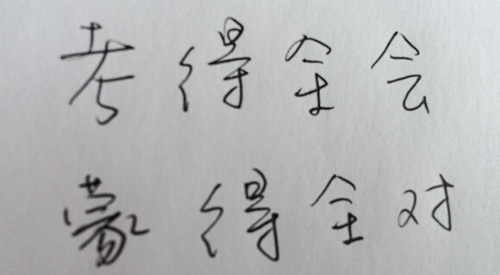 考得全会
蒙得全对